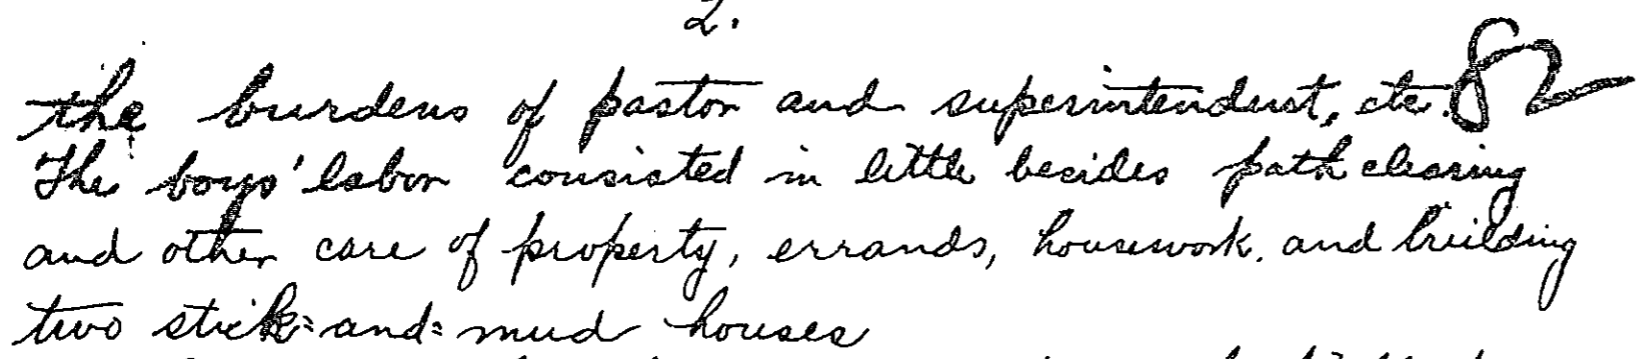 2.
the burdens of pastor and superintendent, etc. 82
The boys' labor consisted in little besides path clearing
and other care of property, errands, housework, and building
two stick=and=mud houses